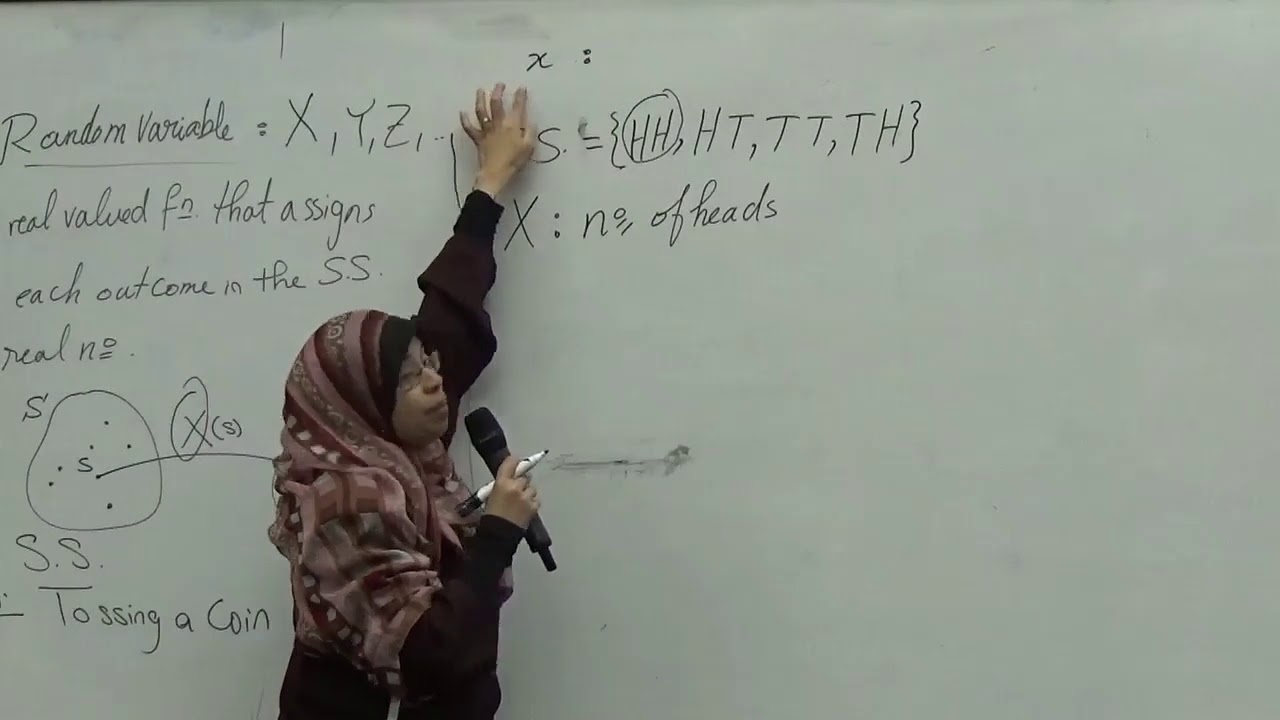 Random Variable : X, Y, Z, ...
real valued fn. that assigns
each outcome in the S.S.
real no.
S
s
X(s)
S.S.
Tossing a Coin
x :
S. = {HH, HT, TT, TH}
X : no. of heads